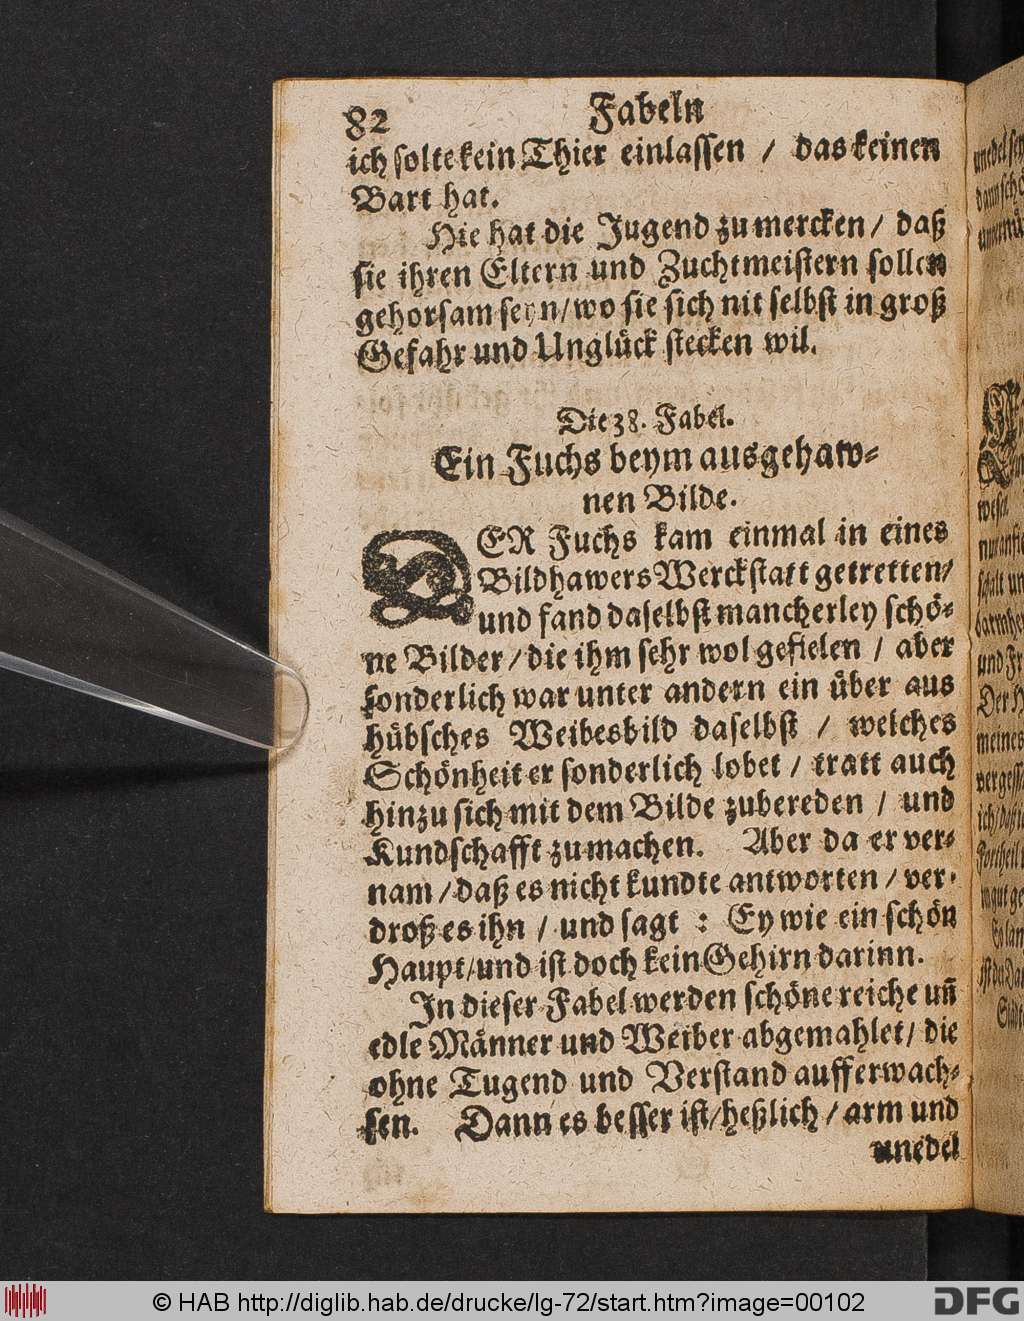 82 Fabeln
ich solte kein Thier einlassen / das keinen
Bart hat.
Hie hat die Jugend zu mercken / daß
sie ihren Eltern und Zuchtmeistern sollen
gehorsam seyn / wo sie sich nit selbst in groß
Gefahr und Unglück stecken wil.
Die 38. Fabel.
Ein Fuchs beym ausgehaw⸗
nen Bilde.
DER Fuchs kam einmal in eines
Bildhawers Werckstatt getretten /
und fand daselbst mancherley schö⸗
ne Bilder / die ihm sehr wol gefielen / aber
sonderlich war unter andern ein über aus
hübsches Weibesbild daselbst / welches
Schönheit er sonderlich lobet / tratt auch
hinzu sich mit dem Bilde zubereden / und
Kundschafft zu machen. Aber da er ver⸗
nam / daß es nicht kundte antworten / ver⸗
droß es ihn / und sagt : Ey wie ein schön
Haupt / und ist doch kein Gehirn darinn.
In dieser Fabel werden schöne reiche uñ
edle Männer und Weiber abgemahlet / die
ohne Tugend und Verstand aufferwach⸗
sen. Dann es besser ist / heßlich / arm und
unedel
© HAB http://diglib.hab.de/drucke/lg-72/start.htm?image=00102
DFG